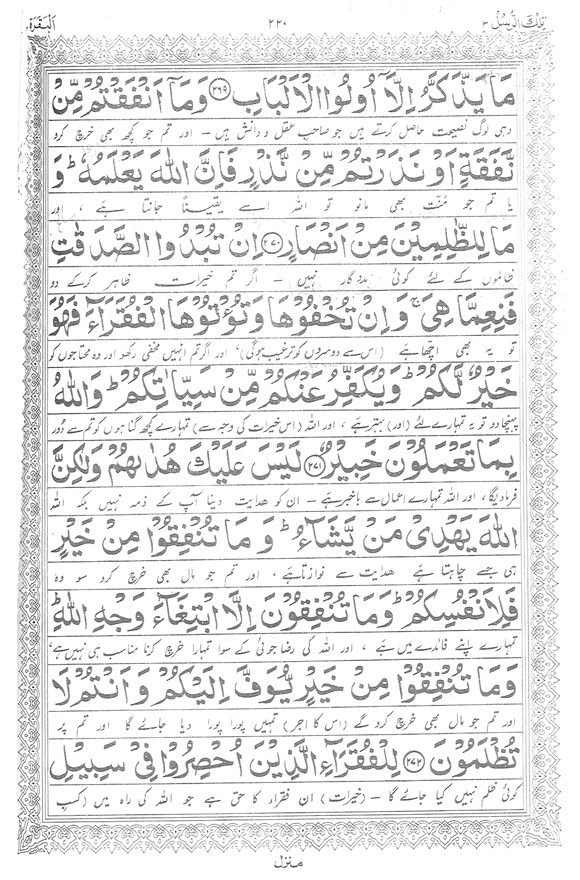 تِلْكَ الرُّسُلُ ٣ ٢٢٠ اَلْبَقَرَة
مَا يَذَّكَّرُ اِلَّاۤ اُولُوا الْاَلْبَابِ ﴿٢٦٩﴾ وَمَاۤ اَنْفَقْتُمْ مِّنْ
وہی لوگ نصیحت حاصل کرتے ہیں جو صاحب عقل و دانش ہیں - اور تم جو کچھ بھی خرچ کرو
نَّفَقَةٍ اَوْ نَذَرْتُمْ مِّنْ نَّذْرٍ فَاِنَّ اللّٰهَ يَعْلَمُهٗ ؕ وَ
یا تم جو منّت بھی مانو تو اللہ اسے یقیناً جانتا ہے ، اور
مَا لِلظّٰلِمِيْنَ مِنْ اَنْصَارٍ ﴿٢٧٠﴾ اِنْ تُبْدُوا الصَّدَقٰتِ
ظالموں کے لئے کوئی مددگار نہیں - اگر تم خیرات ظاہر کرکے دو
فَنِعِمَّا هِیَ ۚ وَ اِنْ تُخْفُوْهَا وَتُؤْتُوْهَا الْفُقَرَآءَ فَهُوَ
تو یہ بھی اچھا ہے (اس سے دوسروں کو ترغیب ہوگی) ، اور اگر تم انہیں مخفی رکھو اور وہ محتاجوں کو
خَيْرٌ لَّكُمْ ؕ وَيُكَفِّرُ عَنْكُمْ مِّنْ سَيِّاٰتِكُمْ ؕ وَاللّٰهُ
پہنچا دو تو یہ تمہارے لئے (اور) بہتر ہے ، اور اللہ (اس خیرات کی وجہ سے) تمہارے کچھ گناہوں کو تم سے دُور
بِمَا تَعْمَلُوْنَ خَبِيْرٌ ﴿٢٧١﴾ لَيْسَ عَلَيْكَ هُدٰىهُمْ وَلٰكِنَّ
فرما دیگا ، اور اللہ تمہارے اعمال سے باخبر ہے - ان کو ھدایت دینا آپ کے ذمہ نہیں بلکہ اللہ
اللّٰهَ يَهْدِیْ مَنْ يَّشَآءُ ؕ وَ مَا تُنْفِقُوْا مِنْ خَيْرٍ
ہی جسے چاہتا ہے ھدایت سے نوازتا ہے ، اور تم جو مال بھی خرچ کرو سو وہ
فَلِاَنْفُسِكُمْ ؕ وَمَا تُنْفِقُوْنَ اِلَّا ابْتِغَآءَ وَجْهِ اللّٰهِ ؕ
تمہارے اپنے فائدے میں ہے ، اور اللہ کی رضا جوئی کے سوا تمہارا خرچ کرنا مناسب ہی نہیں ہے ،
وَمَا تُنْفِقُوْا مِنْ خَيْرٍ يُّوَفَّ اِلَيْكُمْ وَاَنْتُمْ لَا
اور تم جو مال بھی خرچ کرو گے (اس کا اجر) تمہیں پورا پورا دیا جائے گا اور تم پر
تُظْلَمُوْنَ ﴿٢٧٢﴾ لِلْفُقَرَآءِ الَّذِيْنَ اُحْصِرُوْا فِیْ سَبِيْلِ
کوئی ظلم نہیں کیا جائے گا - (خیرات) ان فقراء کا حق ہے جو اللہ کی راہ میں (کسب
منزل